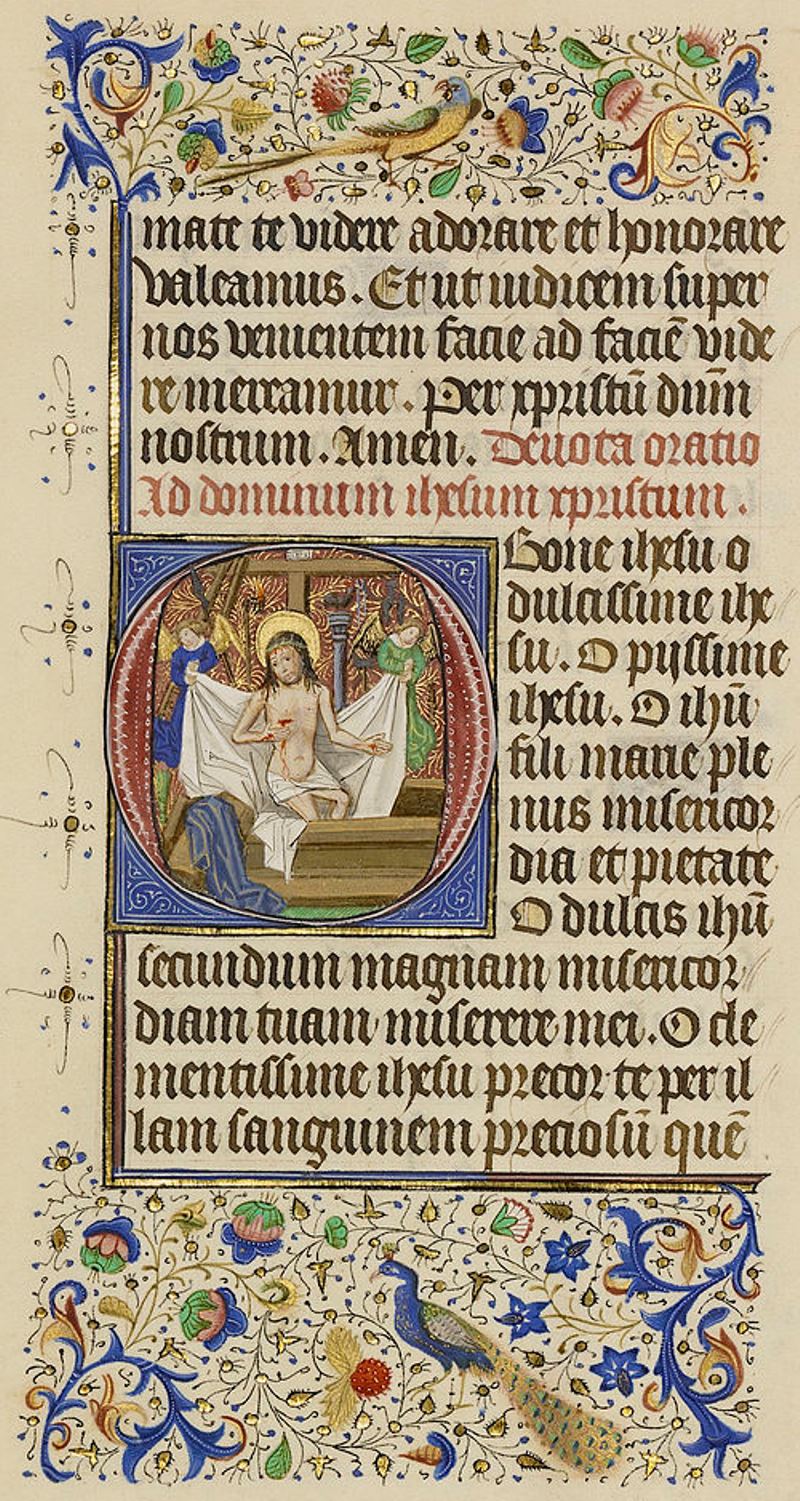 mate te videre adorare et honorare
valeamus. Et ut iudicem super
nos venientem facie ad faciē vide
re mereamur. Per xpristū dūm
nostrum. Amen. Deuota oratio
Ad dominum ihesum xpristum.
O Bone ihesu o
dulcissime ihe
su. O pijssime
ihesu. O ihū
fili marie ple
nus misericor
dia et pietate
O dulcis ihū
secundum magnam misericor
diam tuam miserere mei. O cle
mentissime ihesu precor te per il
lam sanguinem preciosū quē